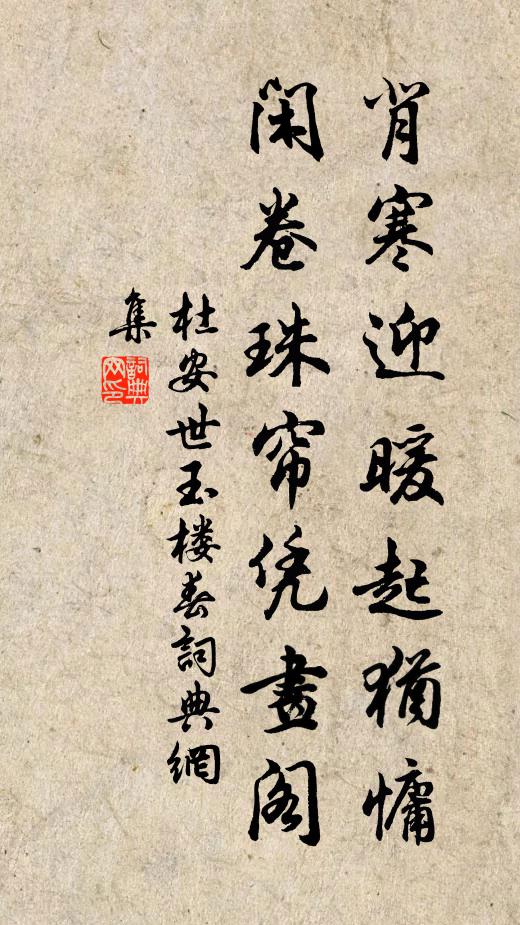 背寒迎暖起猶慵
闲卷珠帘凭畫阁
杜安世玉楼春詞典網
集
詞典
网印